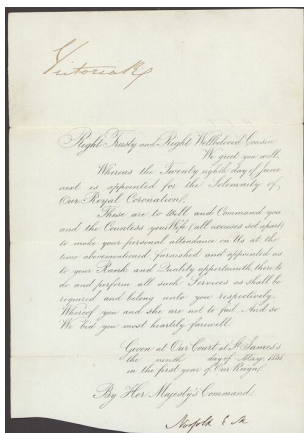 Victoria R
Right Trusty and Right Wellbeloved Cousin
We greet you well,
Whereas the Twenty eighth day of June
next is appointed for the Solemnity of
Our Royal Coronation,
These are to Will and Command you
and the Countess your Wife (all excuses set apart)
to make your personal attendance on Us at the
time abovementioned furnished and appointed as
to your Rank and Quality appertaineth there to
do and perform all such Services as shall be
required and belong unto you respectively.
Whereof you and she are not to fail. And so
We bid you most heartily farewell
Given at Our Court at St. James's
the ninth day of May 1838
in the first year of Our Reign.
By Her Majesty's Command.
Norfolk E M